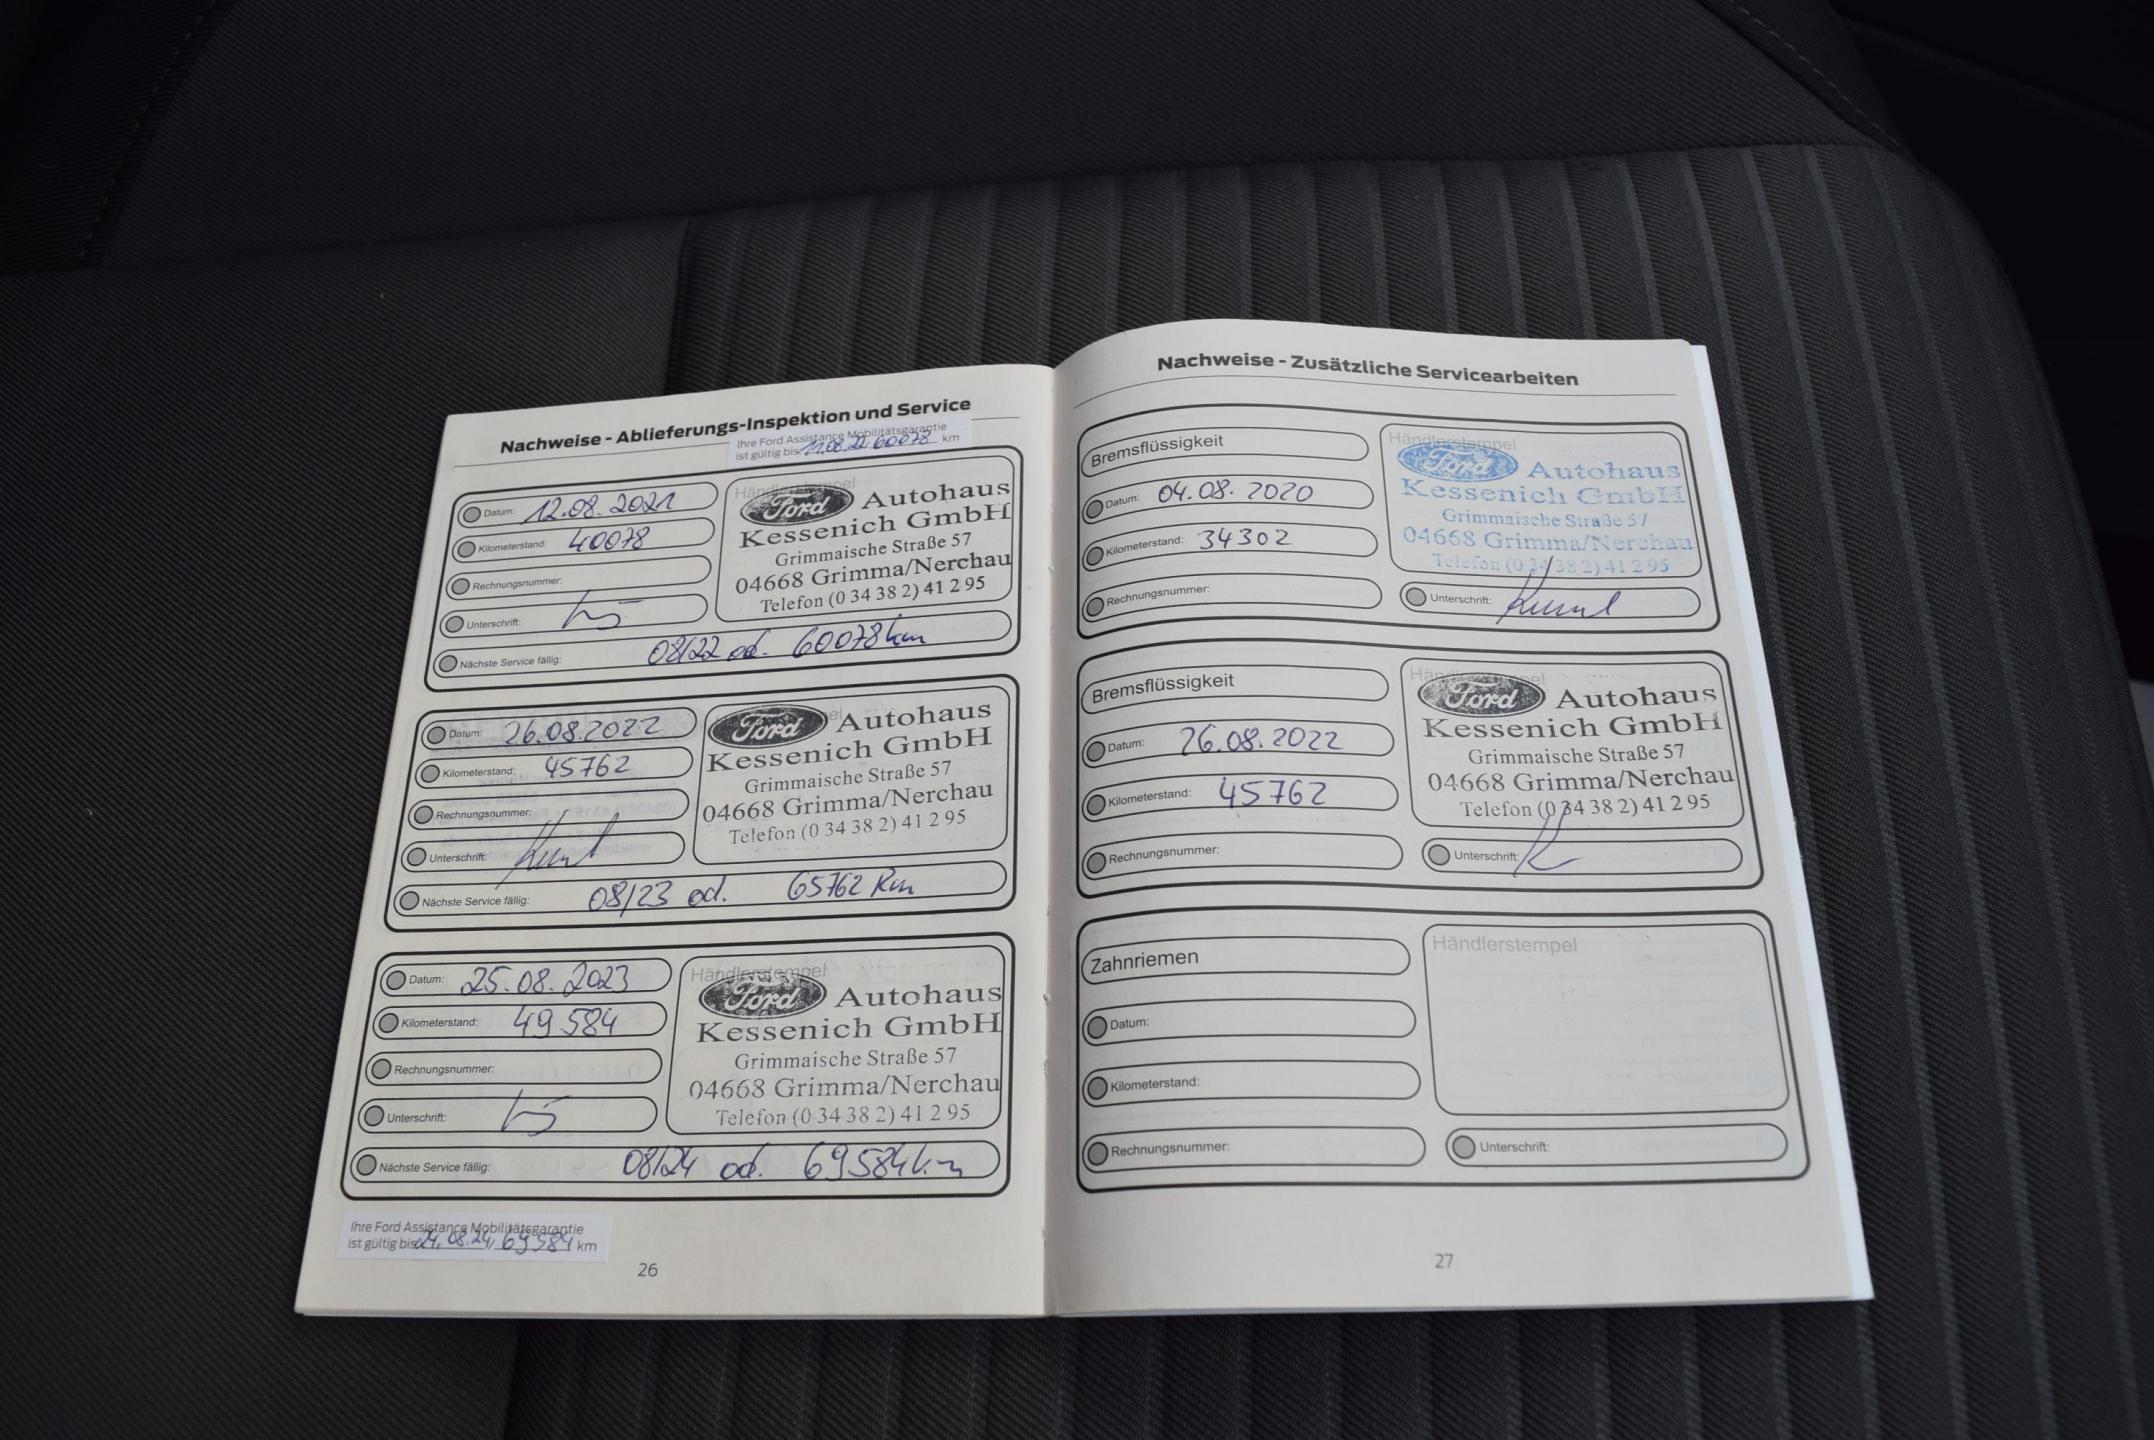 Nachweise - Ablieferungs-Inspektion und Service
Ihre Ford Assistance Mobilitätsgarantie
ist gültig bis 11.08.22, 60078 km
Datum: 12.08.2021
Kilometerstand: 40078
Rechnungsnummer:
Unterschrift:
Nächste Service fällig: 08/22 od. 60078 km
Händlerstempel
Ford Autohaus
Kessenich GmbH
Grimmaische Straße 57
04668 Grimma/Nerchau
Telefon (0 34 38 2) 41 2 95
Datum: 26.08.2022
Kilometerstand: 45762
Rechnungsnummer:
Unterschrift:
Nächste Service fällig: 08/23 od. 65762 Km
Ford Autohaus
Kessenich GmbH
Grimmaische Straße 57
04668 Grimma/Nerchau
Telefon (0 34 38 2) 41 2 95
Datum: 25.08.2023
Kilometerstand: 49584
Rechnungsnummer:
Unterschrift:
Nächste Service fällig: 08/24 od. 69584 km
Händlerstempel
Ford Autohaus
Kessenich GmbH
Grimmaische Straße 57
04668 Grimma/Nerchau
Telefon (0 34 38 2) 41 2 95
Ihre Ford Assistance Mobilitätsgarantie
ist gültig bis 24.08.24, 69584 km
26
Nachweise - Zusätzliche Servicearbeiten
Bremsflüssigkeit
Datum: 04.08.2020
Kilometerstand: 34302
Rechnungsnummer:
Händlerstempel
Ford Autohaus
Kessenich GmbH
Grimmaische Straße 57
04668 Grimma/Nerchau
Telefon (0 34 38 2) 41 2 95
Unterschrift:
Bremsflüssigkeit
Datum: 26.08.2022
Kilometerstand: 45762
Rechnungsnummer:
Ford Autohaus
Kessenich GmbH
Grimmaische Straße 57
04668 Grimma/Nerchau
Telefon (0 34 38 2) 41 2 95
Unterschrift:
Zahnriemen
Datum:
Kilometerstand:
Rechnungsnummer:
Händlerstempel
Unterschrift:
27